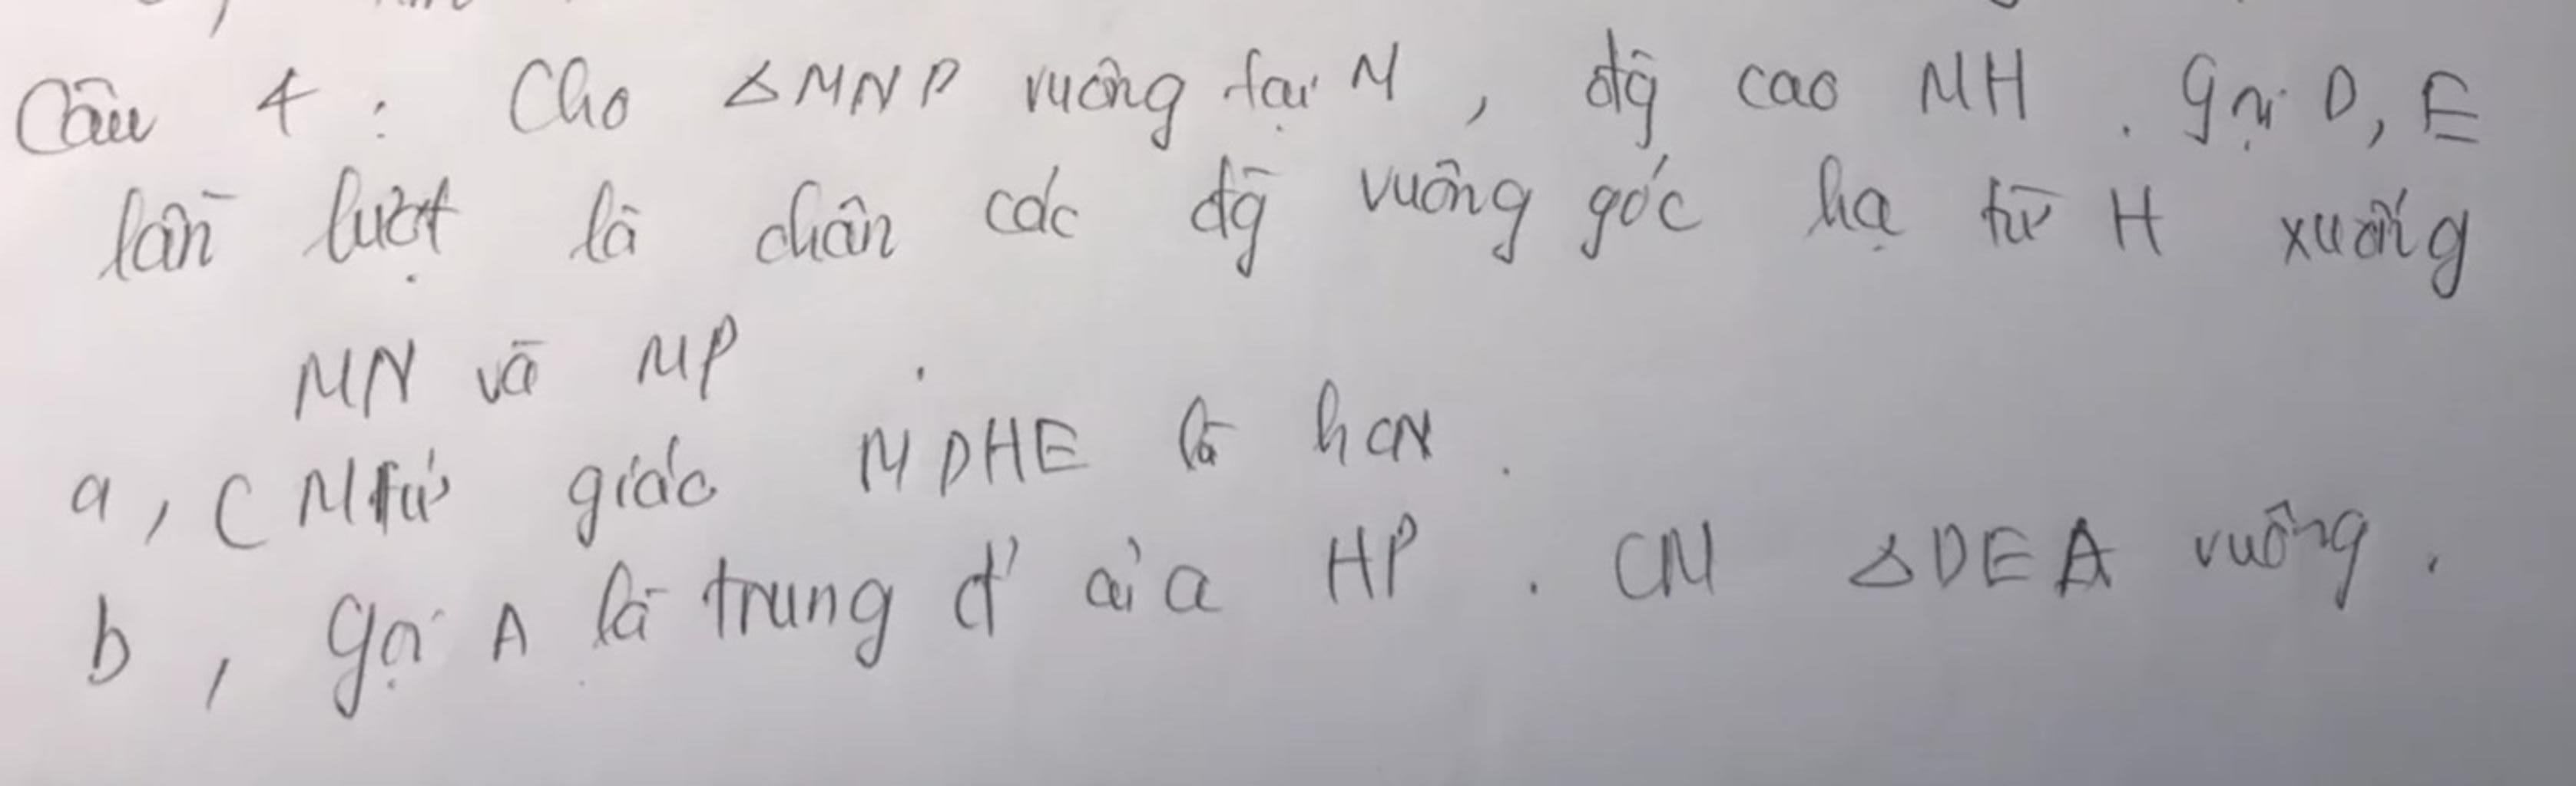 Câu 4 : Cho ΔMNP vuông tại M , đg cao MH . Gọi D, E
lần lượt là chân các đg vuông góc hạ từ H xuống
MN và MP .
a, CM tứ giác MDHE là hcn .
b , gọi A là trung đ' của HP . CM ΔDEA vuông .